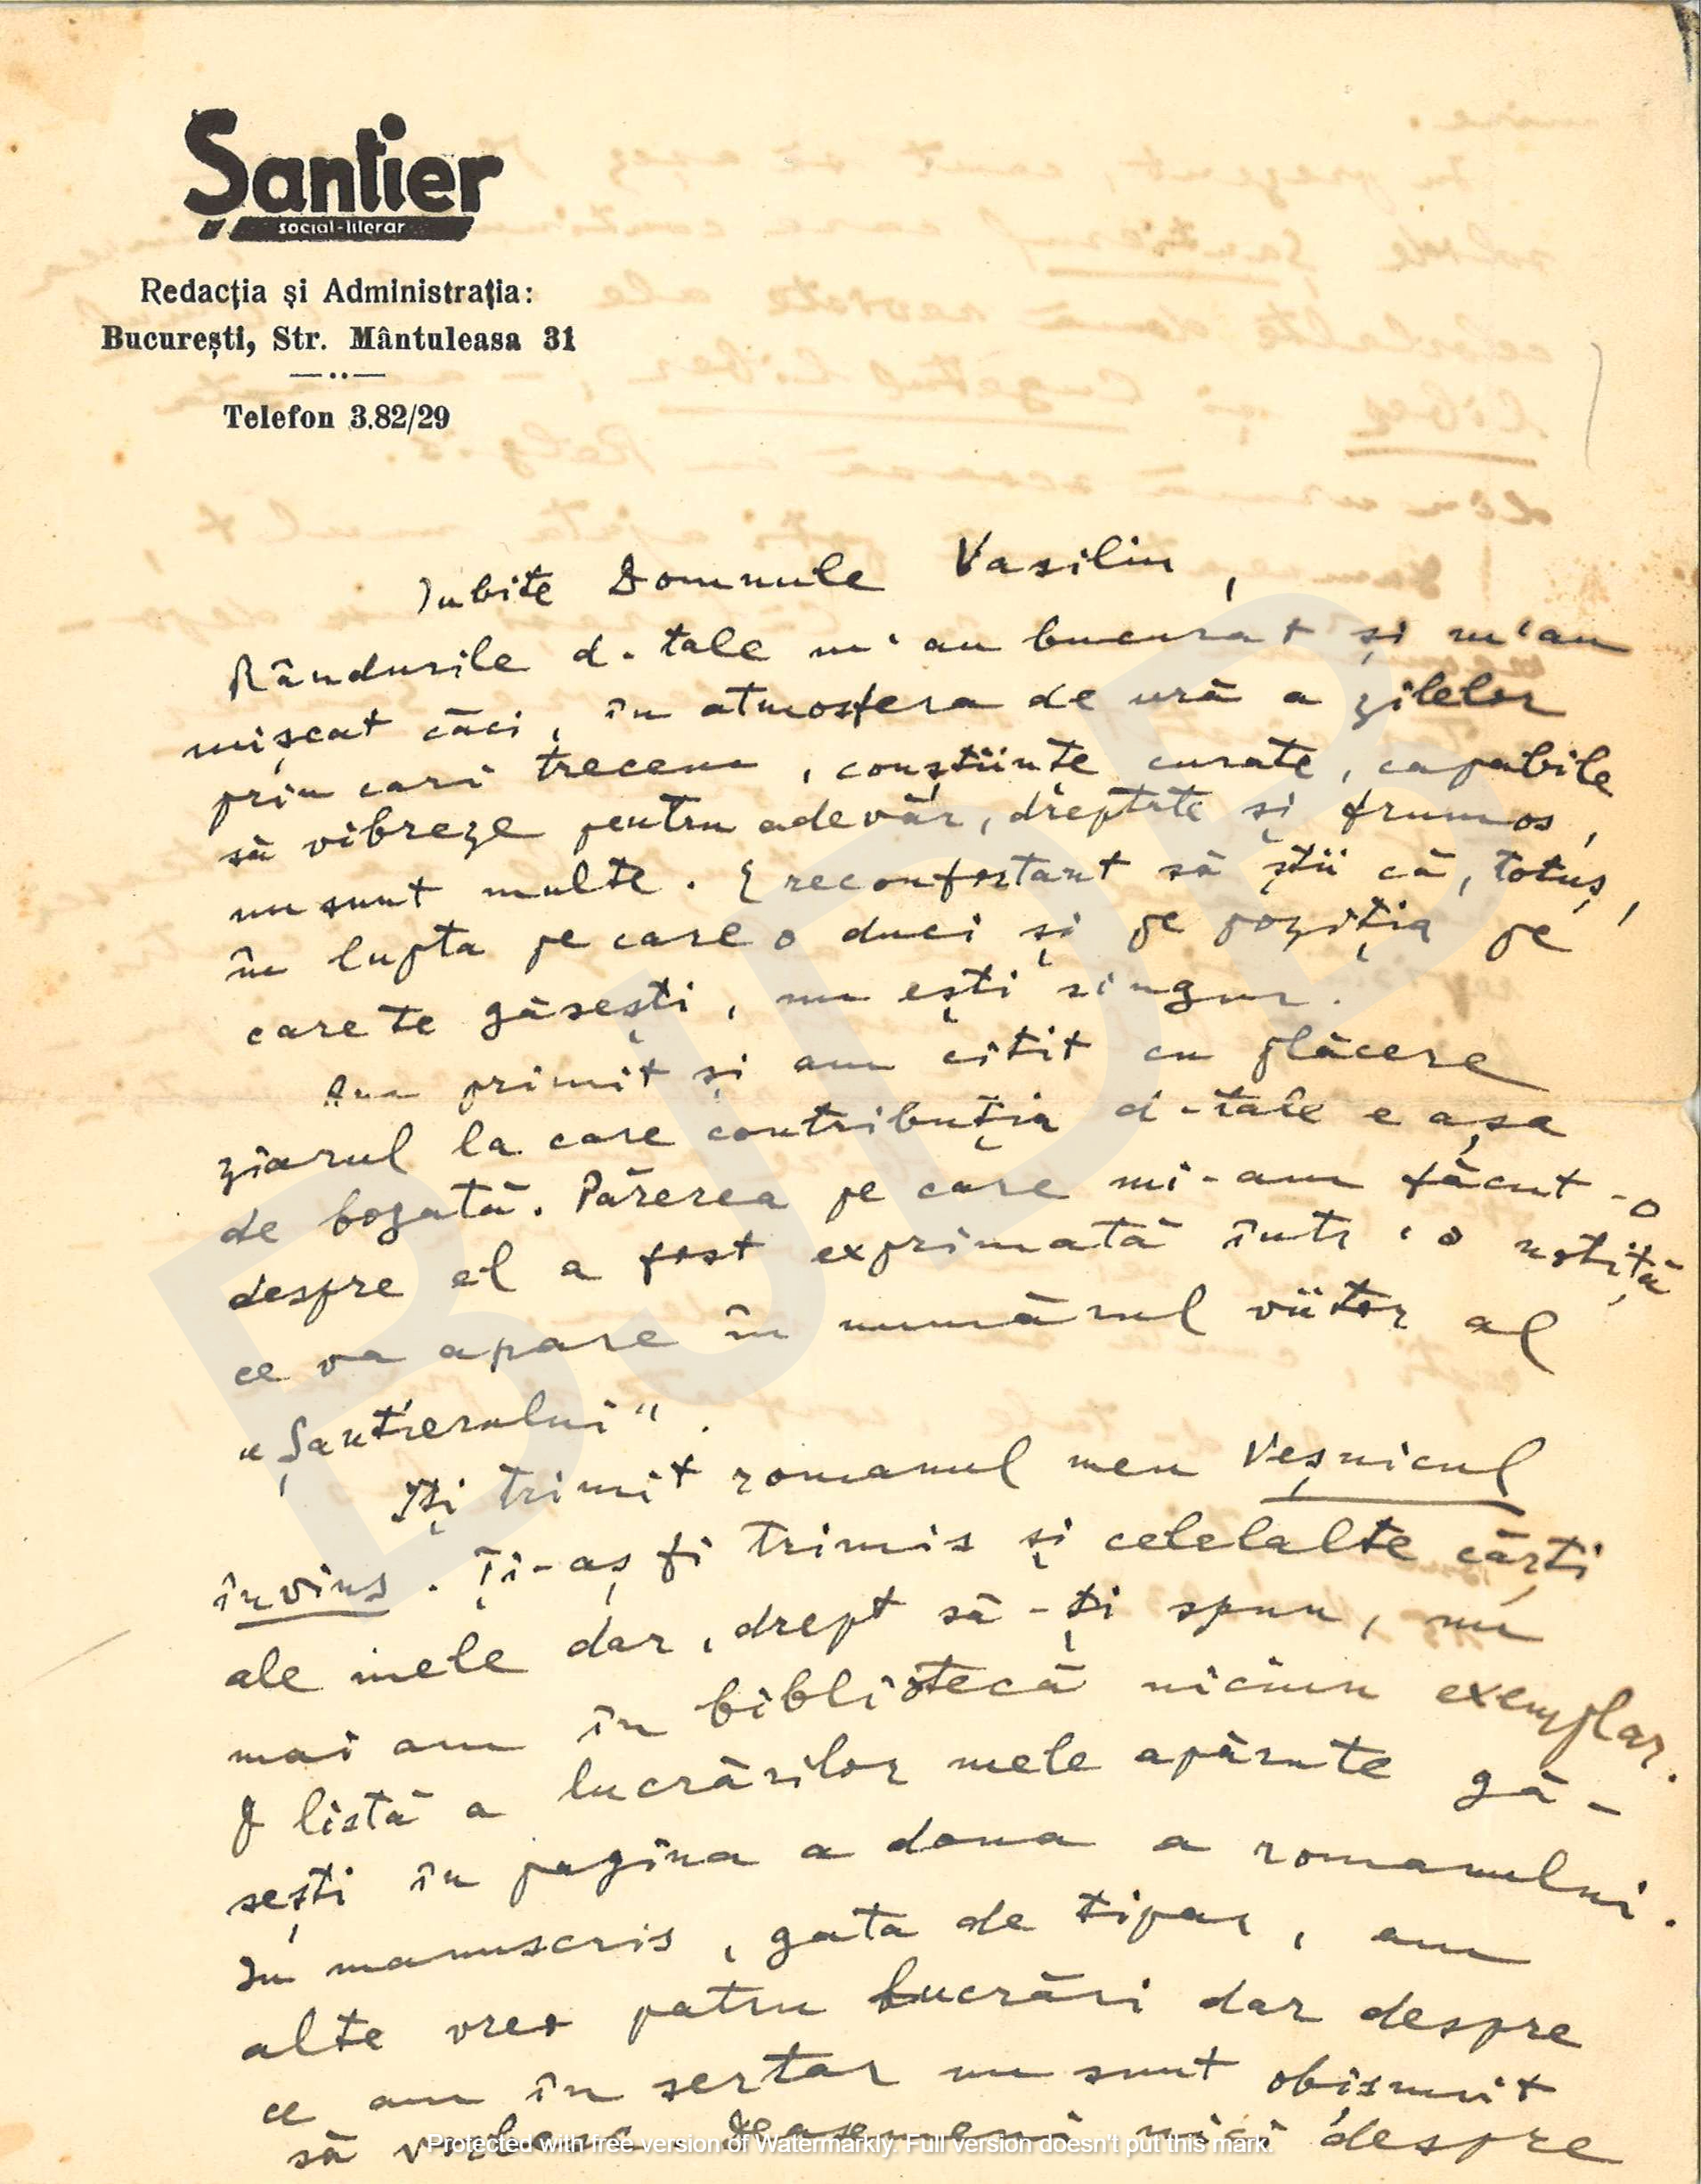 Șantier
social-literar
Redacția și Administrația:
București, Str. Mântuleasa 31
Telefon 3.82/29
Iubite Domnule Vasiliu,
Rândurile d-tale m'au bucurat și m'au
mișcat căci, în atmosfera de ură a zilelor
prin cari trecem, conștiințe curate, capabile
să vibreze pentru adevăr, dreptate și frumos,
nu sunt multe. E reconfortant să știi că, totuș,
în lupta pe care o duci și pe poziția pe
care te găsești, nu ești singur.
Am primit și am citit cu plăcere
ziarul la care contribuția d-tale e așa
de bogată. Părerea pe care mi-am făcut-o
despre el a fost exprimată într'o notiță
ce va apare în numărul viitor al
„Șantierului".
Iți trimit romanul meu Veșnicul
învins. Ți-aș fi trimis și celelalte cărți
ale mele dar, drept să-ți spun, nu
mai am în bibliotecă niciun exemplar.
O listă a lucrărilor mele apărute gă-
sești în pagina a doua a romanului.
In manuscris, gata de tipar, am
alte vreo patru lucrări dar despre
ce am în sertar nu sunt obișnuit
să vorbesc deasemeni nici despre
BJDP
Protected with free version of Watermarkly. Full version doesn't put this mark.